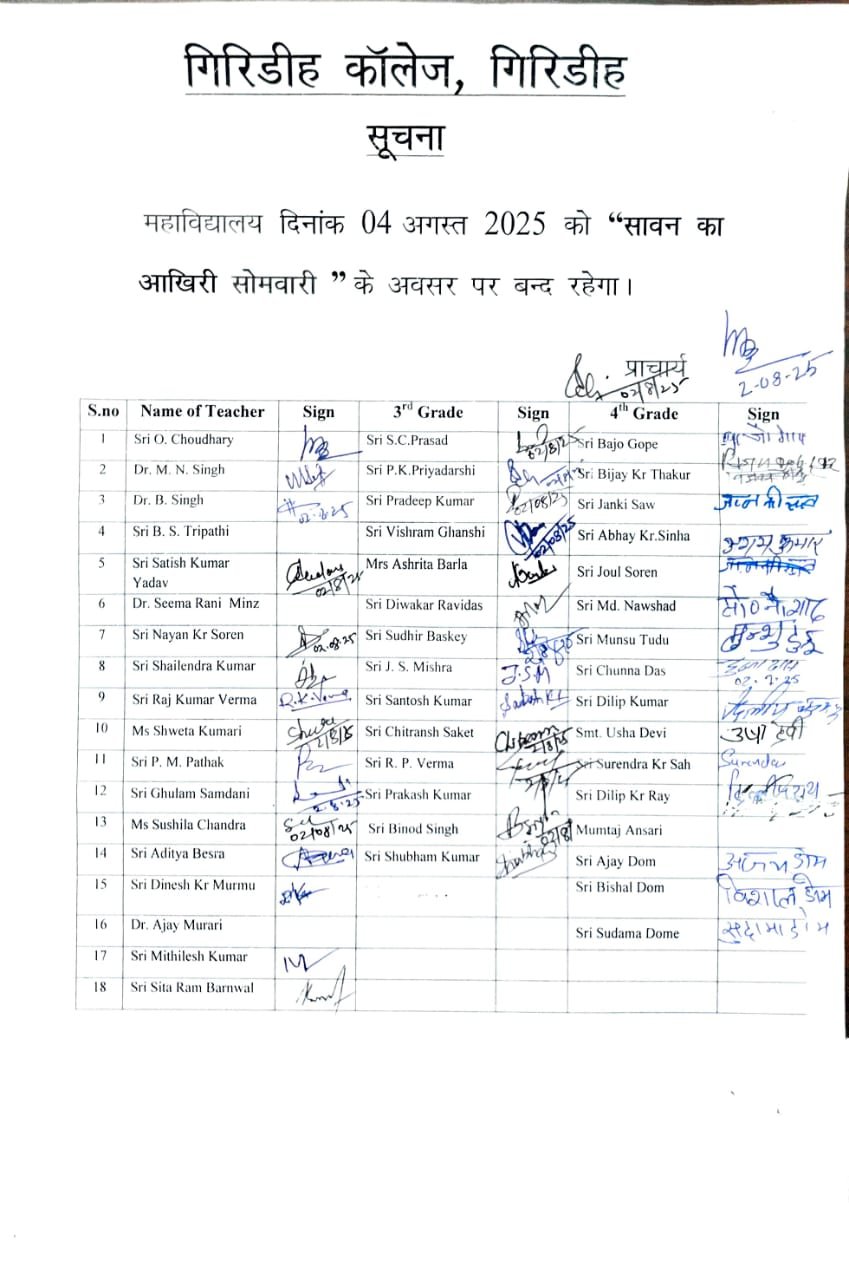 गिरिडीह कॉलेज, गिरिडीह
सूचना
महाविद्यालय दिनांक 04 अगस्त 2025 को “सावन का
आखिरी सोमवारी ” के अवसर पर बन्द रहेगा।
प्राचार्य
02/8/25 2-08-25
S.no Name of Teacher Sign 3rd Grade Sign 4th Grade Sign
1 Sri O. Choudhary Sri S.C.Prasad 02/8/25 Sri Bajo Gope
2 Dr. M. N. Singh Sri P.K.Priyadarshi Sri Bijay Kr Thakur
3 Dr. B. Singh Sri Pradeep Kumar 02/08/25 Sri Janki Saw
4 Sri B. S. Tripathi Sri Vishram Ghanshi 02/08/25 Sri Abhay Kr.Sinha
5 Sri Satish Kumar Yadav 02/8/25 Mrs Ashrita Barla Sri Joul Soren
6 Dr. Seema Rani Minz Sri Diwakar Ravidas Sri Md. Nawshad
7 Sri Nayan Kr Soren 02.08.25 Sri Sudhir Baskey Sri Munsu Tudu
8 Sri Shailendra Kumar Sri J. S. Mishra J.S.M Sri Chunna Das
9 Sri Raj Kumar Verma R.K. Verma Sri Santosh Kumar Sri Dilip Kumar
10 Ms Shweta Kumari 2/8/25 Sri Chitransh Saket 2/8/25 Smt. Usha Devi उषा देवी
11 Sri P. M. Pathak Sri R. P. Verma Sri Surendra Kr Sah
12 Sri Ghulam Samdani 2-8-25 Sri Prakash Kumar Sri Dilip Kr Ray
13 Ms Sushila Chandra 02/08/25 Sri Binod Singh Mumtaj Ansari
14 Sri Aditya Besra Sri Shubham Kumar Sri Ajay Dom अजय डोम
15 Sri Dinesh Kr Murmu Sri Bishal Dom विशाल डोम
16 Dr. Ajay Murari Sri Sudama Dome सुदामा डोम
17 Sri Mithilesh Kumar
18 Sri Sita Ram Barnwal